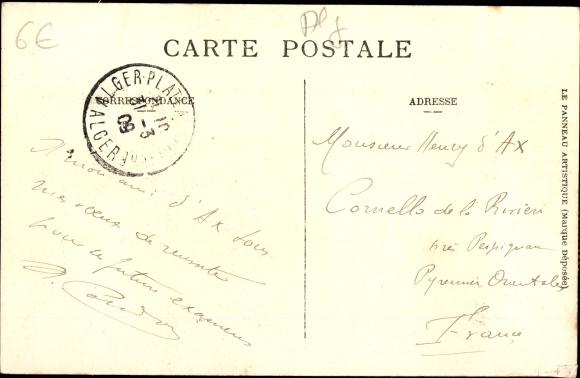 6€
Alg
CARTE POSTALE
CORRESPONDANCE
ALGER-PLATA
ALGER
3
09
A mon ami d'Ax tous
mes voeux de réussite
pour de futurs examens
ADRESSE
Monsieur Henry d'Ax
Cornella de la Rivière
près Perpignan
Pyrénées Orientales
France
LE PANNEAU ARTISTIQUE (Marque Déposée)